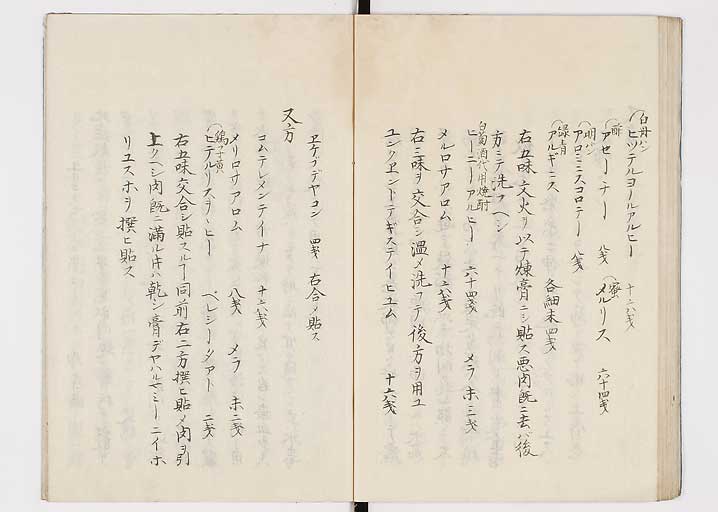 (白丹バン)ヒッテルヨールアルヒー 十六戔
(酢)アセーチー 八戔 (蜜)メルリス 六十四戔
(明バン)アロミニスコロテー 八戔
(緑青)アルギニス 各細末四戔
右五味文火ヲ以テ煉膏ニシ貼ス悪肉既ニ去バ後
方ミテ洗フヘシ
白葡酒代用焼酎
ヒーニーアルヒー 六十四戔 メラ ホ三戔
メルロサアロム 十六戔
右三味ヲ交合シ温メ洗フテ後方ヲ用ユ
ユンクエンドテギステイーヒユム 十六戔
ヱケプデヤコン 四戔 右合メ貼ス
又方
コムテレメンテイナ 十六戔
メリロサアロム 八戔 メラ ホ二戔
(鶏子黄)ヒテルリスヲヽヒー ペレシータアト 二戔
右五味交合シ貼スルー同前右二方撰ヒ貼メ肉ヲ引
上クヘシ肉既ニ満ル片ハ乾シ膏デヤハルマミーニイホ
リユスホヲ撰ヒ貼ス